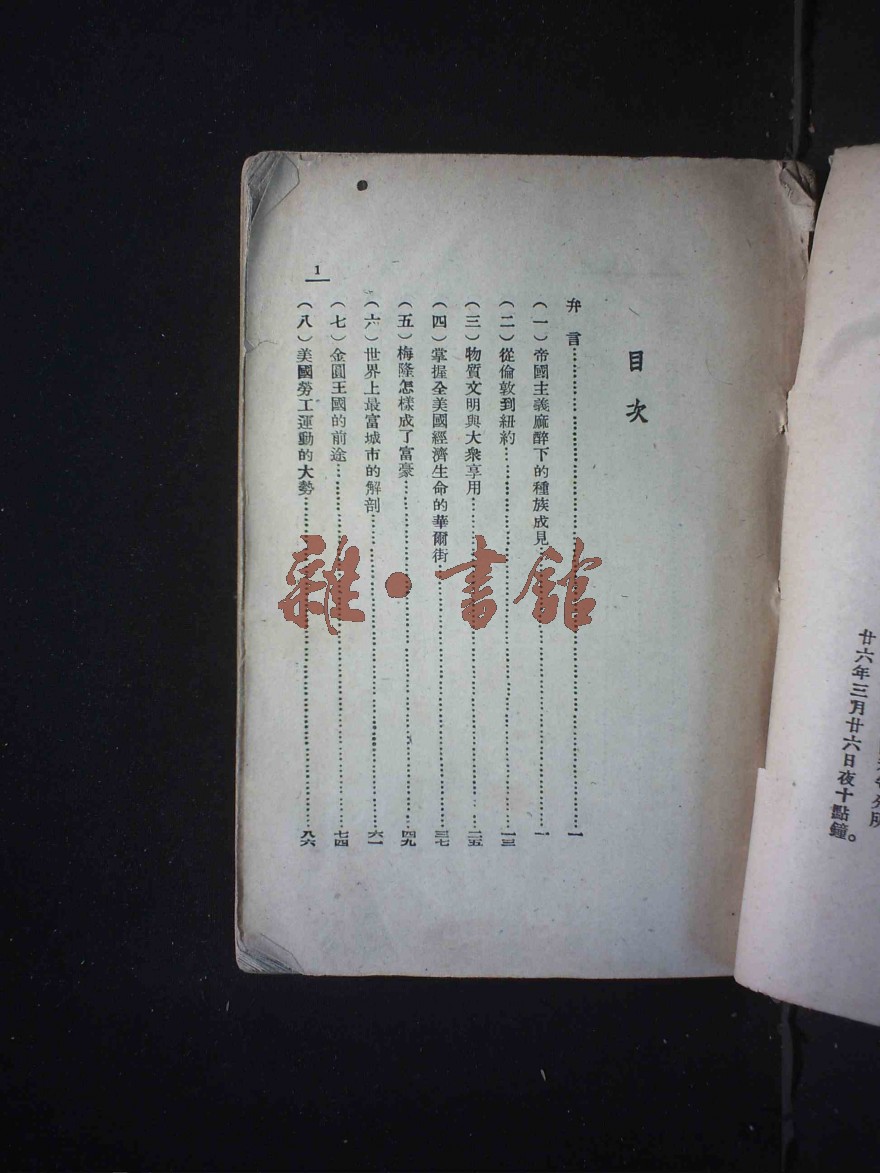 廿六年三月廿六日夜十點鐘。
目次
弁言……一
(一)帝國主義麻醉下的種族成見……一
(二)從倫敦到紐約……一三
(三)物質文明與大衆享用……二五
(四)掌握全美國經濟生命的華爾街……三七
(五)梅隆怎樣成了富豪……四九
(六)世界上最富城市的解剖……六一
(七)金圓王國的前途……七四
(八)美國勞工運動的大勢……八六
1
雜·書館